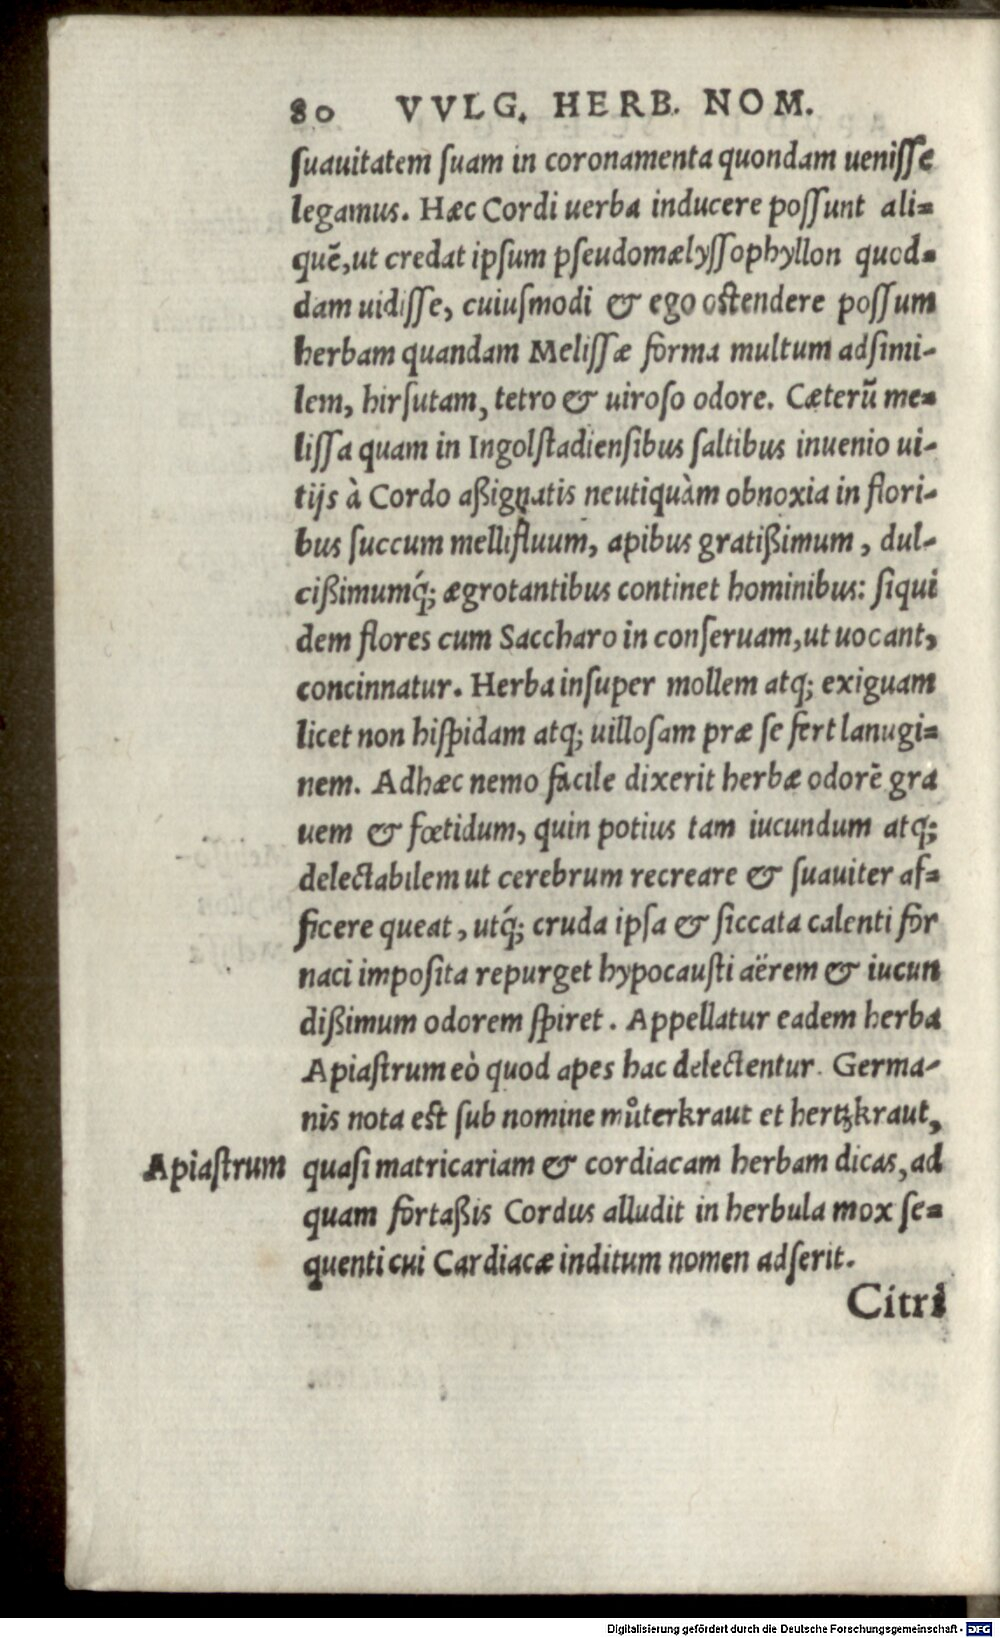 80 VVLG. HERB. NOM.
ſuauitatem ſuam in coronamenta quondam ueniſſe
legamus. Hæc Cordi uerba inducere poſſunt ali=
quē, ut credat ipſum pſeudomælyſſophyllon quod=
dam uidiſſe, cuiuſmodi & ego oſtendere poſſum
herbam quandam Meliſſæ forma multum adſimi-
lem, hirſutam, tetro & uiroſo odore. Cæterū me=
liſſa quam in Ingolſtadienſibus ſaltibus inuenio ui-
tijs à Cordo aßignatis neutiquàm obnoxia in flori-
bus ſuccum mellifluum, apibus gratißimum, dul-
cißimumq́; ægrotantibus continet hominibus: ſiqui
dem flores cum Saccharo in conſeruam, ut uocant,
concinnatur. Herba inſuper mollem atq; exiguam
licet non hiſpidam atq; uilloſam præ ſe fert lanugi=
nem. Adhæc nemo facile dixerit herbæ odorē gra
uem & fœtidum, quin potius tam iucundum atq;
delectabilem ut cerebrum recreare & ſuauiter af=
ficere queat, utq́; cruda ipſa & ſiccata calenti for
naci impoſita repurget hypocauſti aërem & iucun
dißimum odorem ſpiret. Appellatur eadem herba
Apiaſtrum eò quod apes hac delectentur. Germa-
nis nota eſt ſub nomine můterkraut et hertzkraut,
Apiaſtrum quaſi matricariam & cordiacam herbam dicas, ad
quam fortaßis Cordus alludit in herbula mox ſe=
quenti cui Cardiacæ inditum nomen adſerit.
Citri
Digitalisierung gefördert durch die Deutsche Forschungsgemeinschaft - DFG